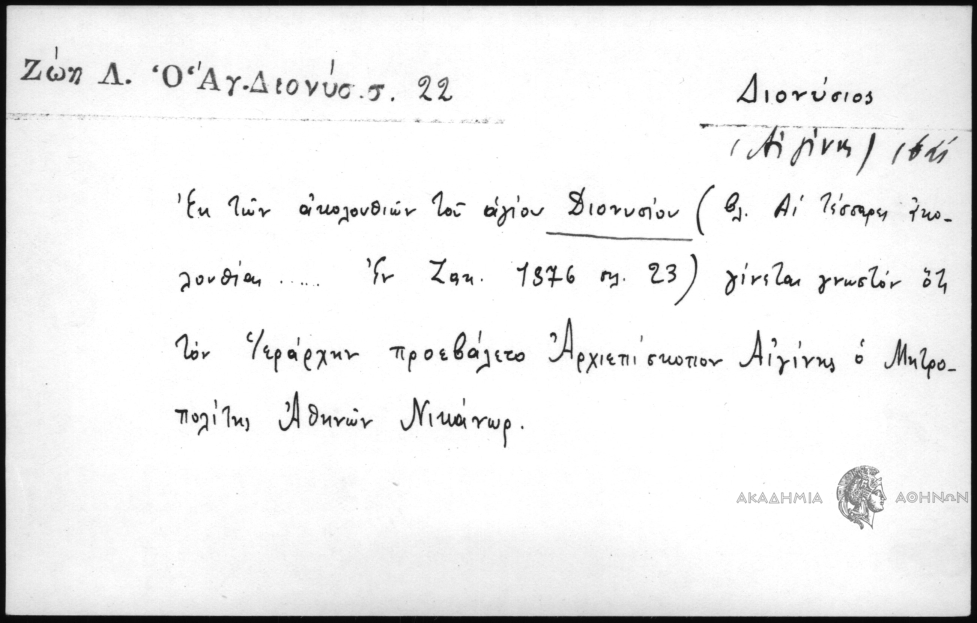 Ζώη Λ. Ὁ Ἅγ. Διονύσ. σ. 22
Διονύσιος
(Αἰγίνης)
Ἐκ τῶν ἀκολουθιῶν τοῦ ἁγίου Διονυσίου (βλ. Αἱ τέσσαρες ἀκο-
λουθίαι ..... Ἐν Ζακ. 1876 σελ. 23) γίνεται γνωστόν ὅτι
τόν Ἱεράρχην προεβάλετο Ἀρχιεπίσκοπον Αἰγίνης ὁ Μητρο-
πολίτης Ἀθηνῶν Νικάνωρ.
ΑΚΑΔΗΜΙΑ ΑΘΗΝΩΝ